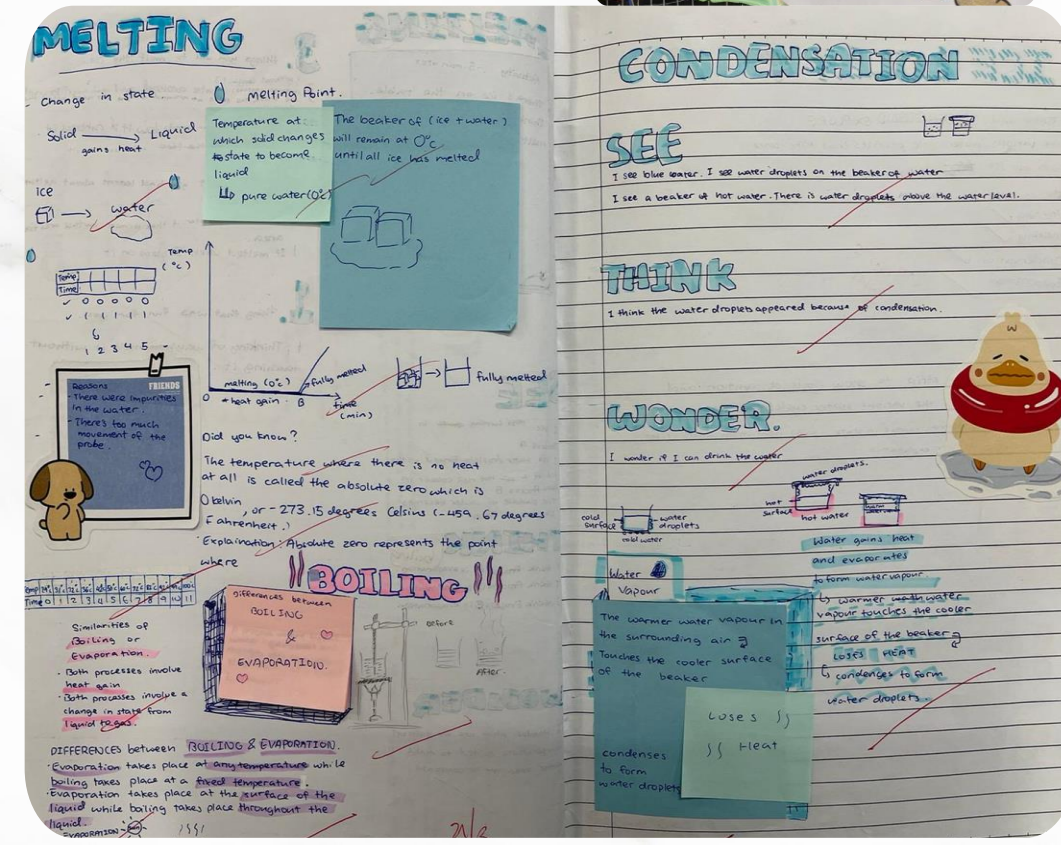 MELTING
- Change in state
Solid → Liquid
gains heat
ICE
→ water
Temp
Time
✓ 0 0 0 0 0
✓ 1 1 1 1 1
1 2 3 4 5
Melting Point.
Temperature at
which solid changes
state to become
liquid
↳ pure water (0°c)
The beaker of (ice + water)
will remain at 0°c
until all ice has melted
Temp
(°c)
melting (0°c)
fully melted
0
heat gain
B
time
(min)
→ fully melted
FRIENDS
Reasons
- There were impurities
in the water.
- There's too much
movement of the
probe.
Did you know?
The temperature where there is no heat
at all is called the absolute zero which is
0 kelvin, or -273.15 degrees Celsius (-459.67 degrees
Fahrenheit.)
Explaination: Absolute zero represents the point
where
BOILING
Time 0 1 2 3 4 5 6 7 8 9 10 11
Similarities of
Boiling or
Evaporation.
· Both processes involve
heat gain
· Both processes involve a
change in state from
liquid to gas.
Differences between
BOILING
&
EVAPORATION.
Before
After
DIFFERENCES between BOILING & EVAPORATION.
· Evaporation takes place at any temperature while
boiling takes place at a fixed temperature.
· Evaporation takes place at the surface of the
liquid while boiling takes place throughout the
liquid.
EVAPORATION
CONDENSATION
SEE
I see blue water. I see water droplets on the beaker of water
I see a beaker of hot water. There is water droplets above the water level.
THINK
I think the water droplets appeared because of condensation.
WONDER.
I wonder if I can drink the water
water droplets.
hot
surface
hot water
cold
surface
water
droplets
cold water
Water
Vapour
The warmer water vapour in
the surrounding air
Touches the cooler surface
of the beaker
Loses
Heat
condenses
to form
water droplets
Water gains heat
and evaporates
to form water vapour
↳ warmer
vapour touches the cooler
surface of the beaker
LOSES HEAT
↳ condenses to form
water droplets.